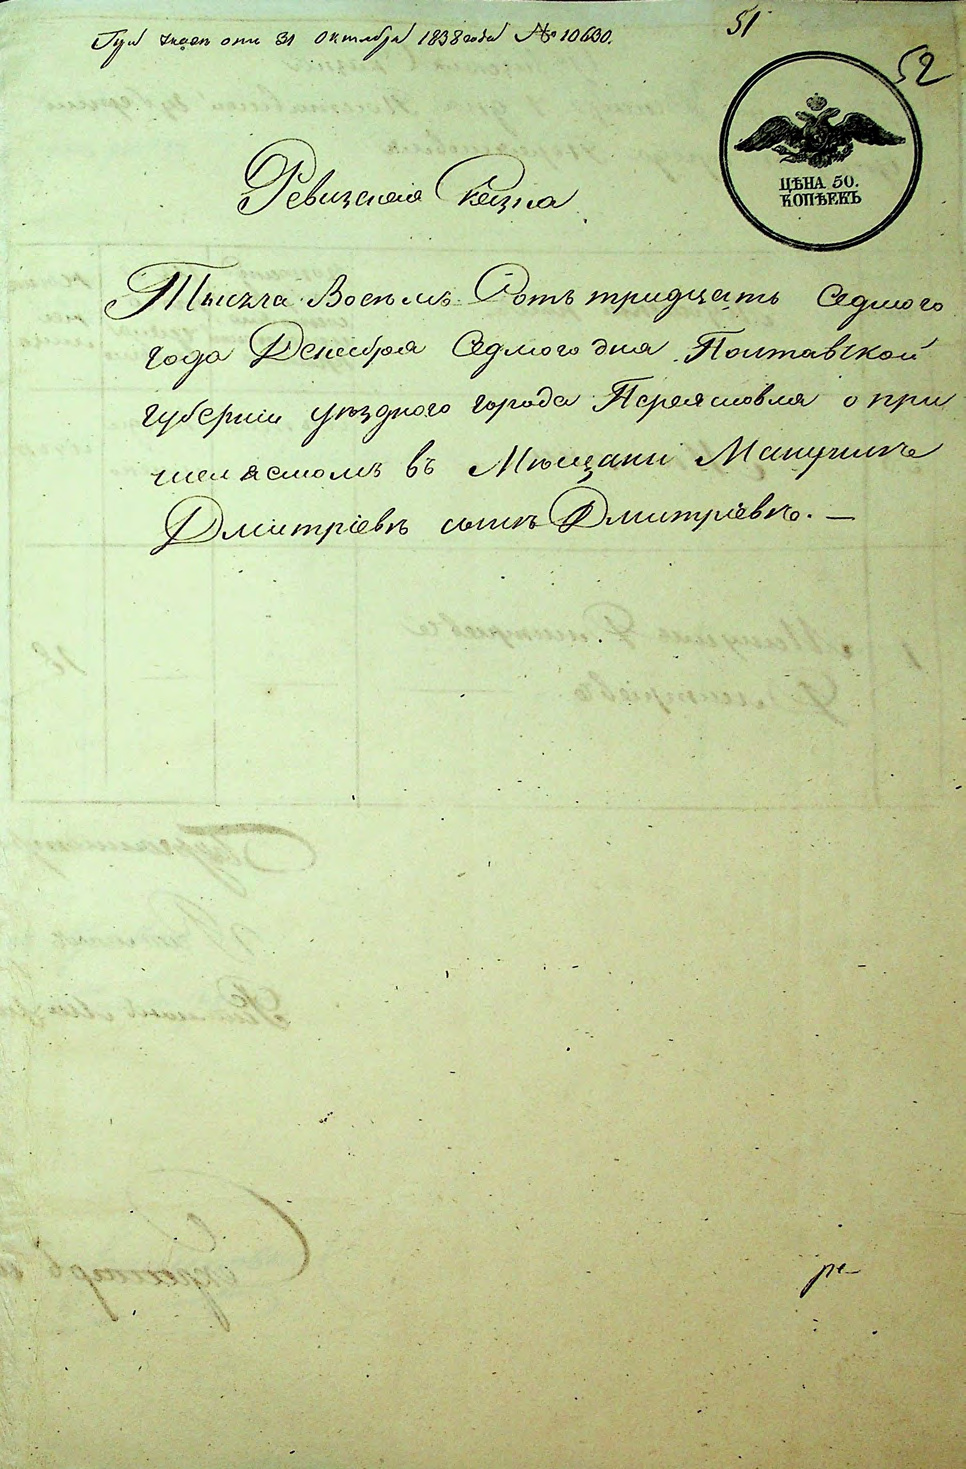 При указе отъ 31 Октября 1838 года № 10630.
51
52
ЦѢНА 50.
КОПѢЕКЪ
Ревизская Сказка
Тысяча Восемь Сотъ тридцать Седмого
года Декабря Седмого дня Полтавской
губерніи уѣзднаго города Переяславля о при
числяемомъ въ Мѣщани Мануилѣ
Дмитріевѣ сынѣ Дмитріевѣ. —